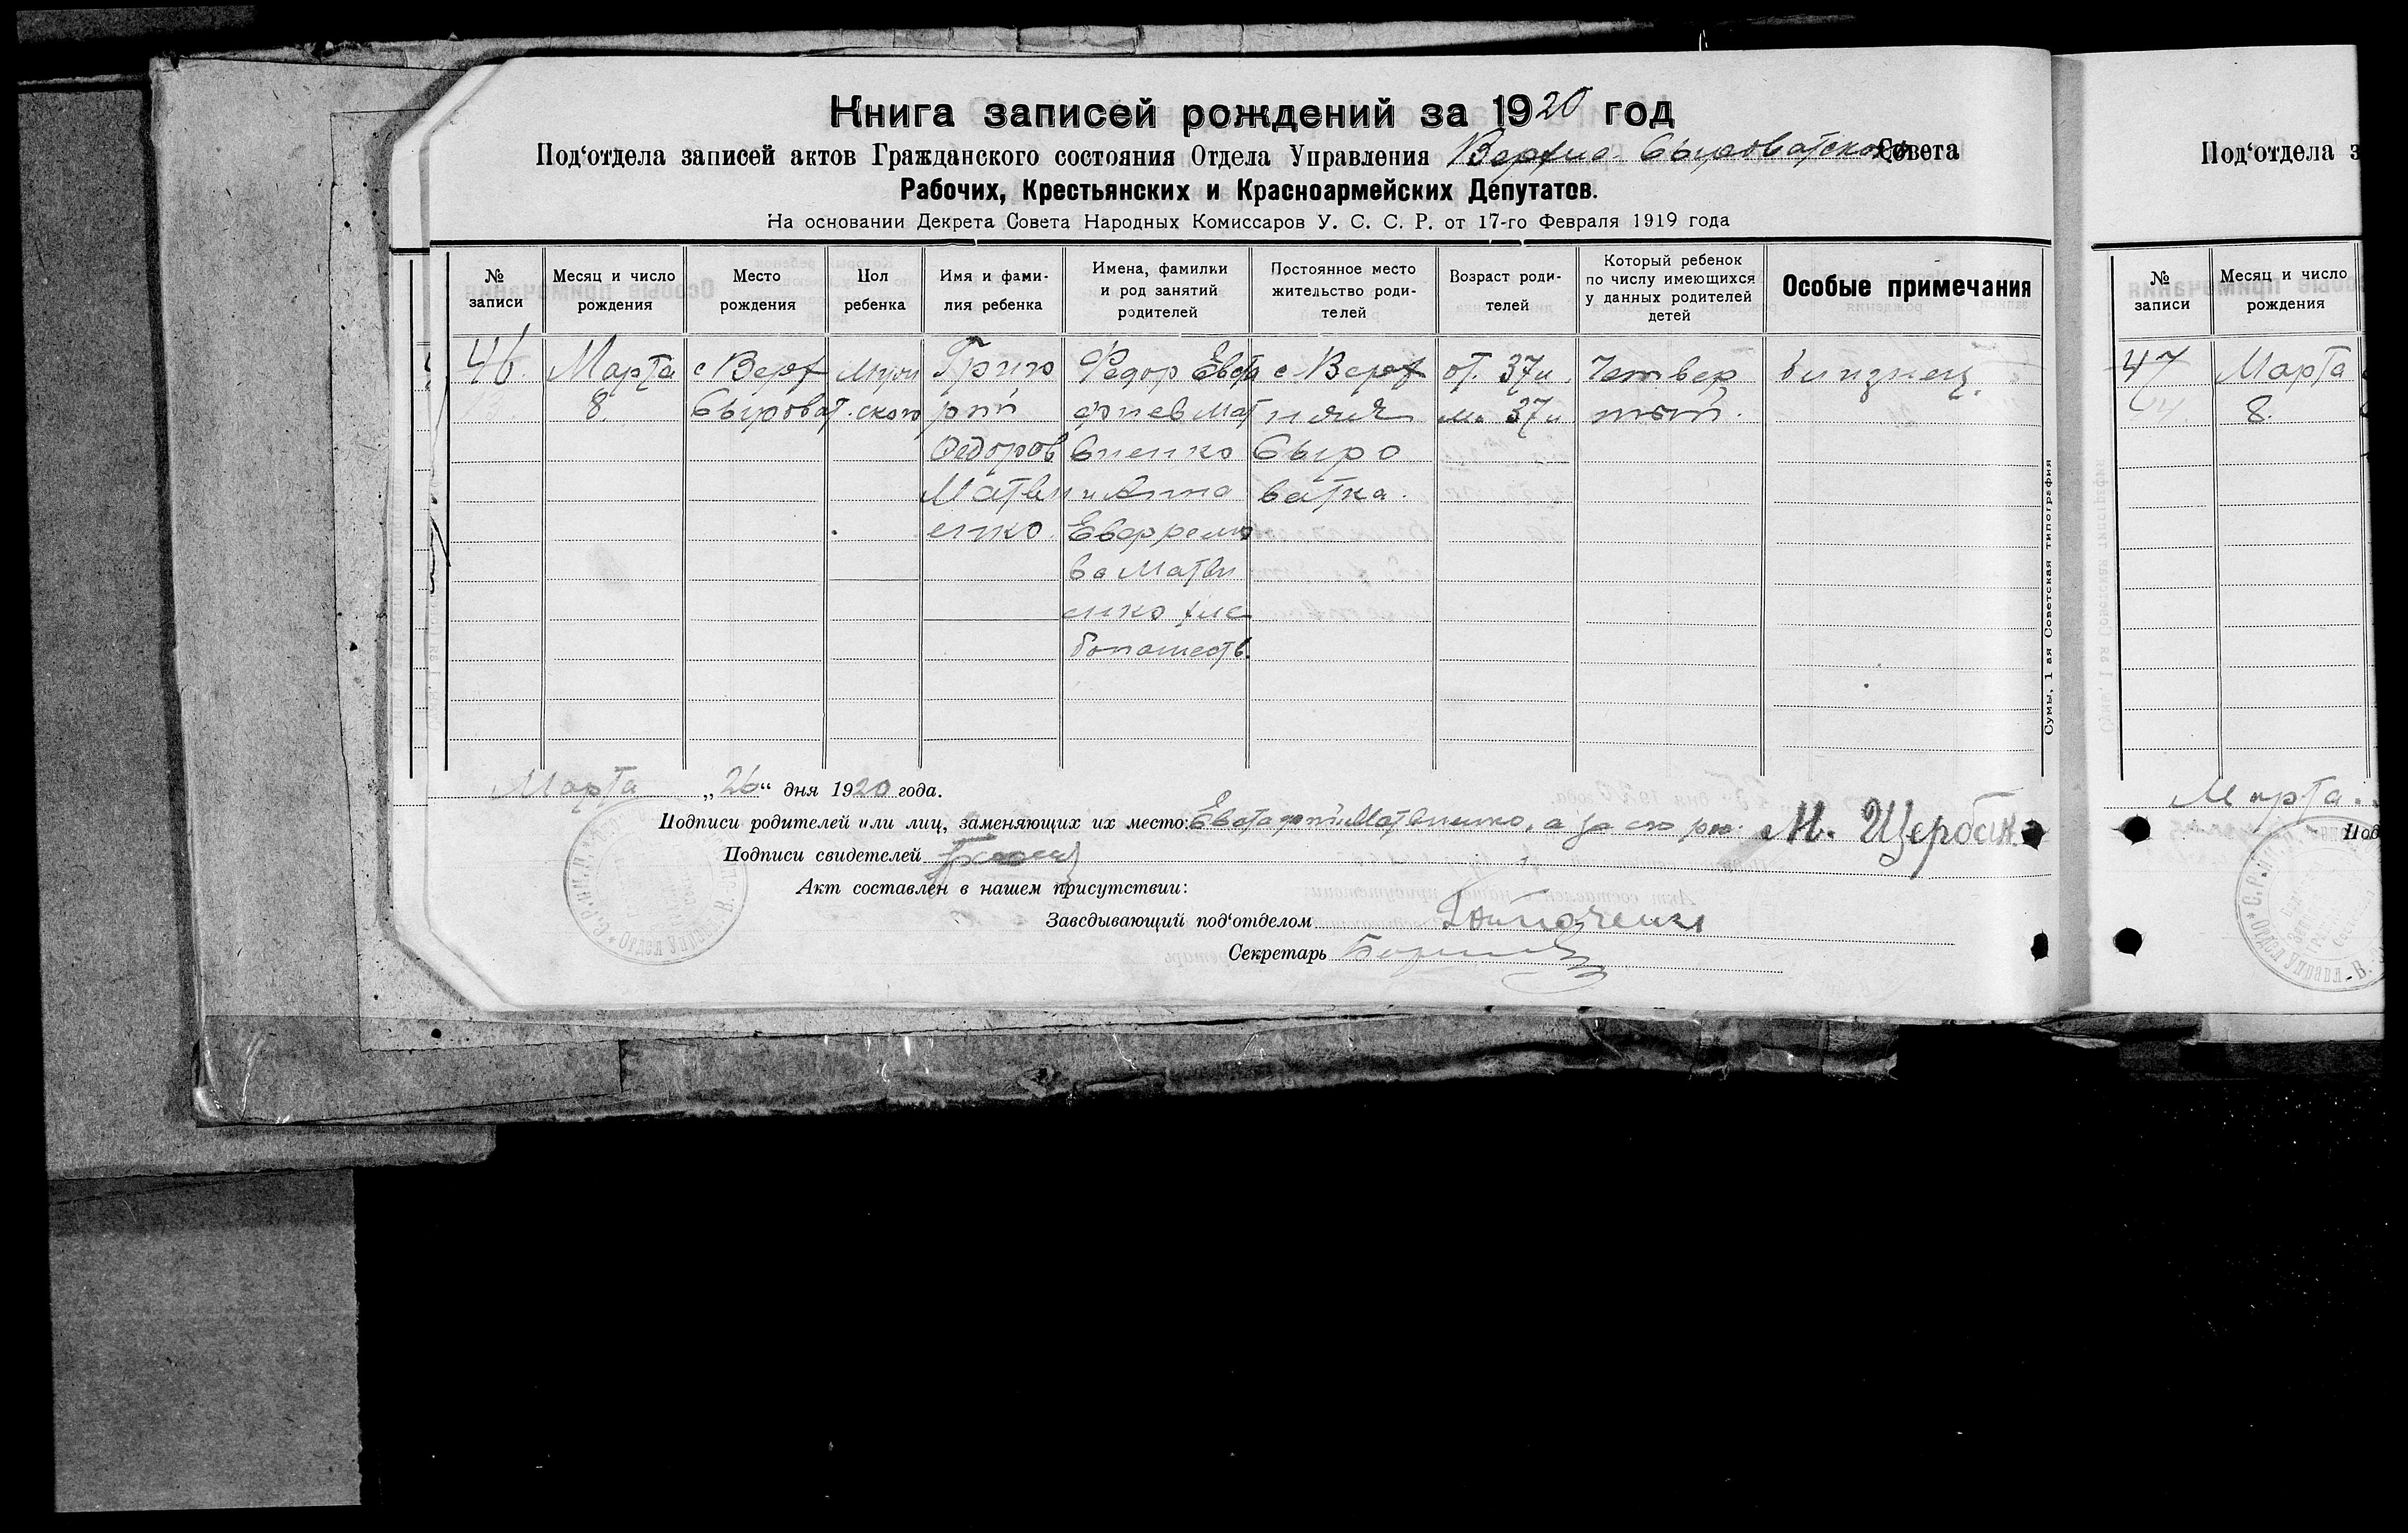 Книга записей рождений за 1920 год
Под‘отдела записей актов Гражданского состояния Отдела Управления Верхно-Сыроватского Совета
Рабочих, Крестьянских и Красноармейских Депутатов.
На основании Декрета Совета Народных Комиссаров У. С. С. Р. от 17-го Февраля 1919 года
№ записи
Месяц и число рождения
Место рождения
Пол ребенка
Имя и фами-
лия ребенка
Имена, фамилии
и род занятий
родителей
Постоянное место
жительство роди-
телей
Возраст роди-
телей
Который ребенок
по числу имеющихся
у данных родителей
детей
Особые примечания
46.
Марта
8.
с Верх
Сыроват.
Мужс
ского
Григо
рий
Федоров
Матви
енко.
Федор Евста
фиев Мат
виенко
и Анна
ва Матви
енко хле
бопашеств.
с Верх
няя
Сыро
ватка.
от. 37 л.
м. 37 л.
Четвер
тый.
Близнец.
Марта „26“ дня 1920 года.
Подписи родителей или лиц, заменяющих их место: Евстафий Матвиенко, а за его М. Щербак
Подписи свидетелей
Акт составлен в нашем присутствии:
Заведывающий под‘отделом
Секретарь
Сумы, 1 ая Советская типография
Под‘отдела з
№ записи
Месяц и число рождения
47
Марта
8.
Марта.
Под